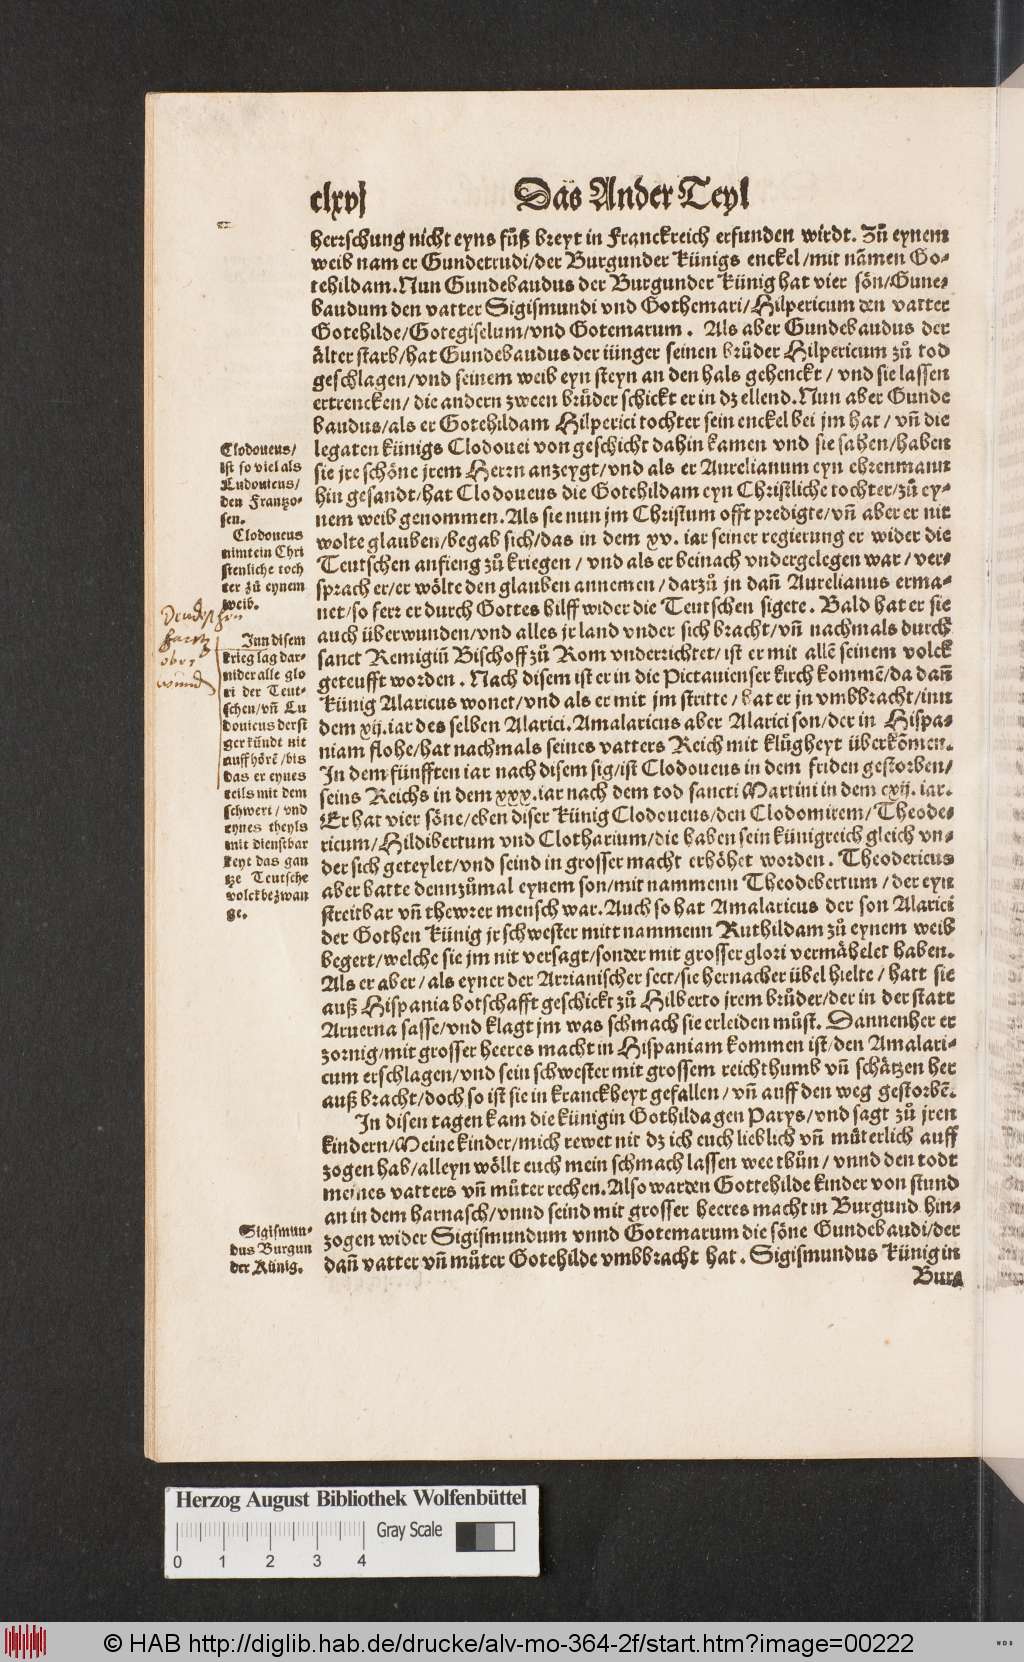 clxvj
Das Ander Teyl
herrschung nicht eyns fůß breyt in Franckreich erfunden wirdt. Zů eynem
weib nam er Gundetrudi/der Burgunder Künigs enckel/mit nãmen Go-
tehildam. Nun Gundebaudus der Burgunder Künig hat vier sön/Gune-
baudum den vatter Sigismundi vnd Gothemari/Hilpericum den vatter
Gotehilde/Gotegiselum/vnd Gotemarum. Als aber Gundebaudus der
älter starb/hat Gundebaudus der iünger seinen brůder Hilpericum zů tod
geschlagen/vnd seinem weib eyn steyn an den hals gehenckt/ vnd sie lassen
ertrencken/ die andern zween brüder schickt er in dz ellend. Nun aber Gunde
baudus/als er Gotehildam Hilperici tochter sein enckel bei jm hat/ vñ die
legaten künigs Clodouei von geschicht dahin kamen vnd sie sahen/haben
sie jre schöne jrem Herrn anzeygt/vnd als er Aurelianum eyn ehrenmann
hin gesandt/hat Clodoueus die Gotehildam eyn Christliche tochter/zů ey-
nem weib genommen. Als sie nun jm Christum offt predigte/vñ aber er nit
wolte glauben/begab sich/das in dem xv. iar seiner regierung er wider die
Teutschen anfieng zů kriegen / vnd als er beinach vndergelegen war/ ver-
sprach er/er wölte den glauben annemen/ darzů jn dañ Aurelianus erma-
net/so ferr er durch Gottes hilff wider die Teutschen sigete. Bald hat er sie
auch überwunden/vnd alles jr land vnder sich bracht/vñ nachmals durch
sanct Remigiũ Bischoff zů Rom vnderrichtet/ ist er mit allẽ seinem volck
geteufft worden. Nach disem ist er in die Pictauienser kirch kommẽ/da dañ
Künig Alaricus wonet/vnd als er mit jm stritte/ hat er jn vmbbracht/inn
dem xij. iar des selben Alarici. Amalaricus aber Alarici son/der in Hispa-
niam flohe/hat nachmals seines vatters Reich mit klůgheyt überkõmen.
In dem fünfften iar nach disem sig/ist Clodoueus in dem friden gestorben/
seins Reichs in dem xxx. iar nach dem tod sancti Martini in dem cxij. iar.
Er hat vier söne/eben diser Künig Clodoueus/den Clodomirem/ Theode-
ricum/Hildibertum vnd Clotharium/die haben sein künigreich gleich vn-
der sich geteylet/vnd seind in grosser macht erhöhet worden. Theodericus
aber hatte dennzůmal eynem son/mit nammenn Theodebertum / der eyn
streitbar vñ thewrer mensch war. Auch so hat Amalaricus der son Alarici
der Gothen Künig jr schwester mitt nammenn Ruthildam zů eynem weib
begert/welche sie jm nit versagt/sonder mit grosser glori vermähelet haben.
Als er aber/ als eyner der Arrianischer sect/sie hernacher übel hielte/ hatt sie
auß Hispania botschafft geschickt zů Hilberto jrem brůder/der in der statt
Aruerna sasse/vnd klagt jm was schmach sie erleiden můst. Dannenher er
zornig/mit grosser heeres macht in Hispaniam kommen ist/den Amalari-
cum erschlagen/vnd sein schwester mit grossem reichthumb vñ schätzen her
auß bracht/doch so ist sie in kranckheyt gefallen/ vñ auff den weg gestorbẽ.
In disen tagen kam die künigin Gothilda gen Parys/vnd sagt zů jren
kindern/Meine kinder/mich rewet nit dz ich euch lieblich vñ müterlich auff
zogen hab/alleyn wöllt euch mein schmach lassen wee thůn/ vnnd den todt
meines vatters vñ můter rechen. Also warden Gottehilde kinder von stund
an in dem harnasch/vnnd seind mit grosser heeres macht in Burgund hin-
zogen wider Sigismundum vnnd Gotemarum die söne Gundebaudi/der
dañ vatter vñ můter Gotehilde vmbbracht hat. Sigismundus Künig in
Bur-
Clodoueus/
ist so viel als
Ludouicus/
den Frantzo-
sen.
Clodoueus
nimt ein Chri
stenliche toch
ter zů eynem
weib.
Inn disem
krieg lag dar-
nider alle glo
ri der Teut-
schen/vñ Lu
douicus der st
ger kündt nit
auffhörẽ/bis
das er eynes
teils mit dem
schwert/ vnd
eynes theyls
mit dienstbar
keyt das gan
tze Teutsche
volck bezwan
ge.
Sigismun-
dus Burgun
der Künig.
Herzog August Bibliothek Wolfenbüttel
Gray Scale
0 1 2 3 4
© HAB http://diglib.hab.de/drucke/alv-mo-364-2f/start.htm?image=00222